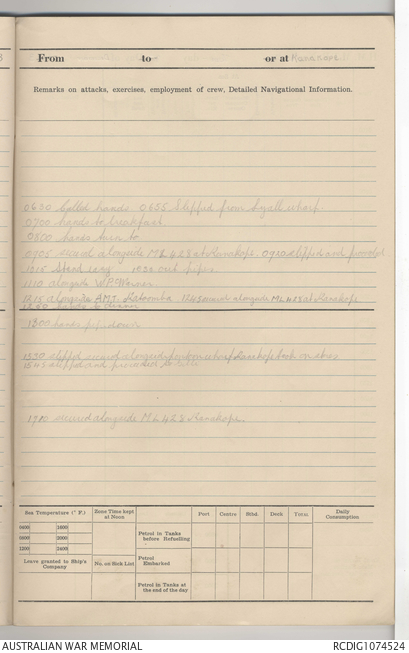 From to or at
Remarks on attacks, exercises, employment of crew, Detailed Navigational Information.
0630 Called hands 0655 Slipped from wharf.
0700 hands to breakfast.
0800 hands turn to
0905 secured alongside ML 428 at 0920 slipped and proceeded
1015 Stand easy 1030 out pipes.
1110 alongside
1215 alongside 1245 secured alongside ML 428 at
1250 hands to dinner
1300 hands pipe down
1330 slipped secured alongside wharf took on
1545 slipped and proceeded to
1700 secured alongside ML 428
Sea Temperature (° F.)
Zone Time kept at Noon
Port Centre Stbd. Deck Total
Daily Consumption
0400 1600
0800 2000
1200 2400
Petrol in Tanks before Refuelling
Leave granted to Ship's Company
No. on Sick List
Petrol Embarked
Petrol in Tanks at the end of the day
AUSTRALIAN WAR MEMORIAL
RCDIG1074524